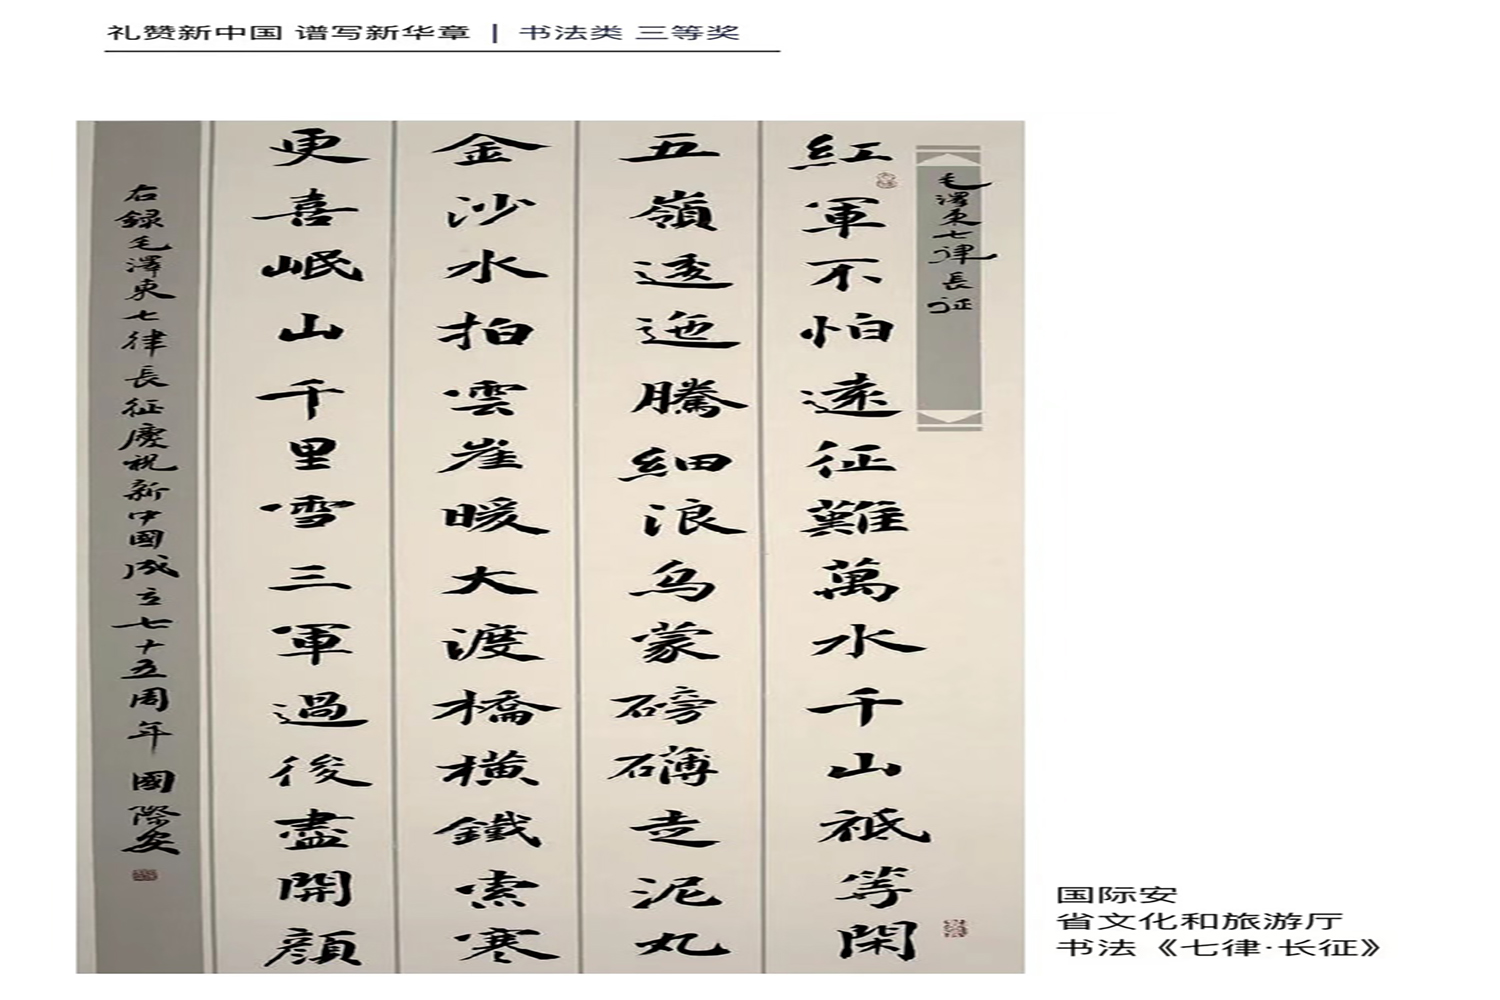 礼赞新中国 谱写新华章 | 书法类 三等奖
毛澤東七律長征
紅軍不怕遠征難萬水千山祗等閑
五嶺逶迤騰細浪烏蒙磅礴走泥丸
金沙水拍雲崖暖大渡橋橫鐵索寒
更喜岷山千里雪三軍過後盡開顔
右録毛澤東七律長征慶祝新中國成立七十五周年 國際安
国际安
省文化和旅游厅
书法《七律·长征》